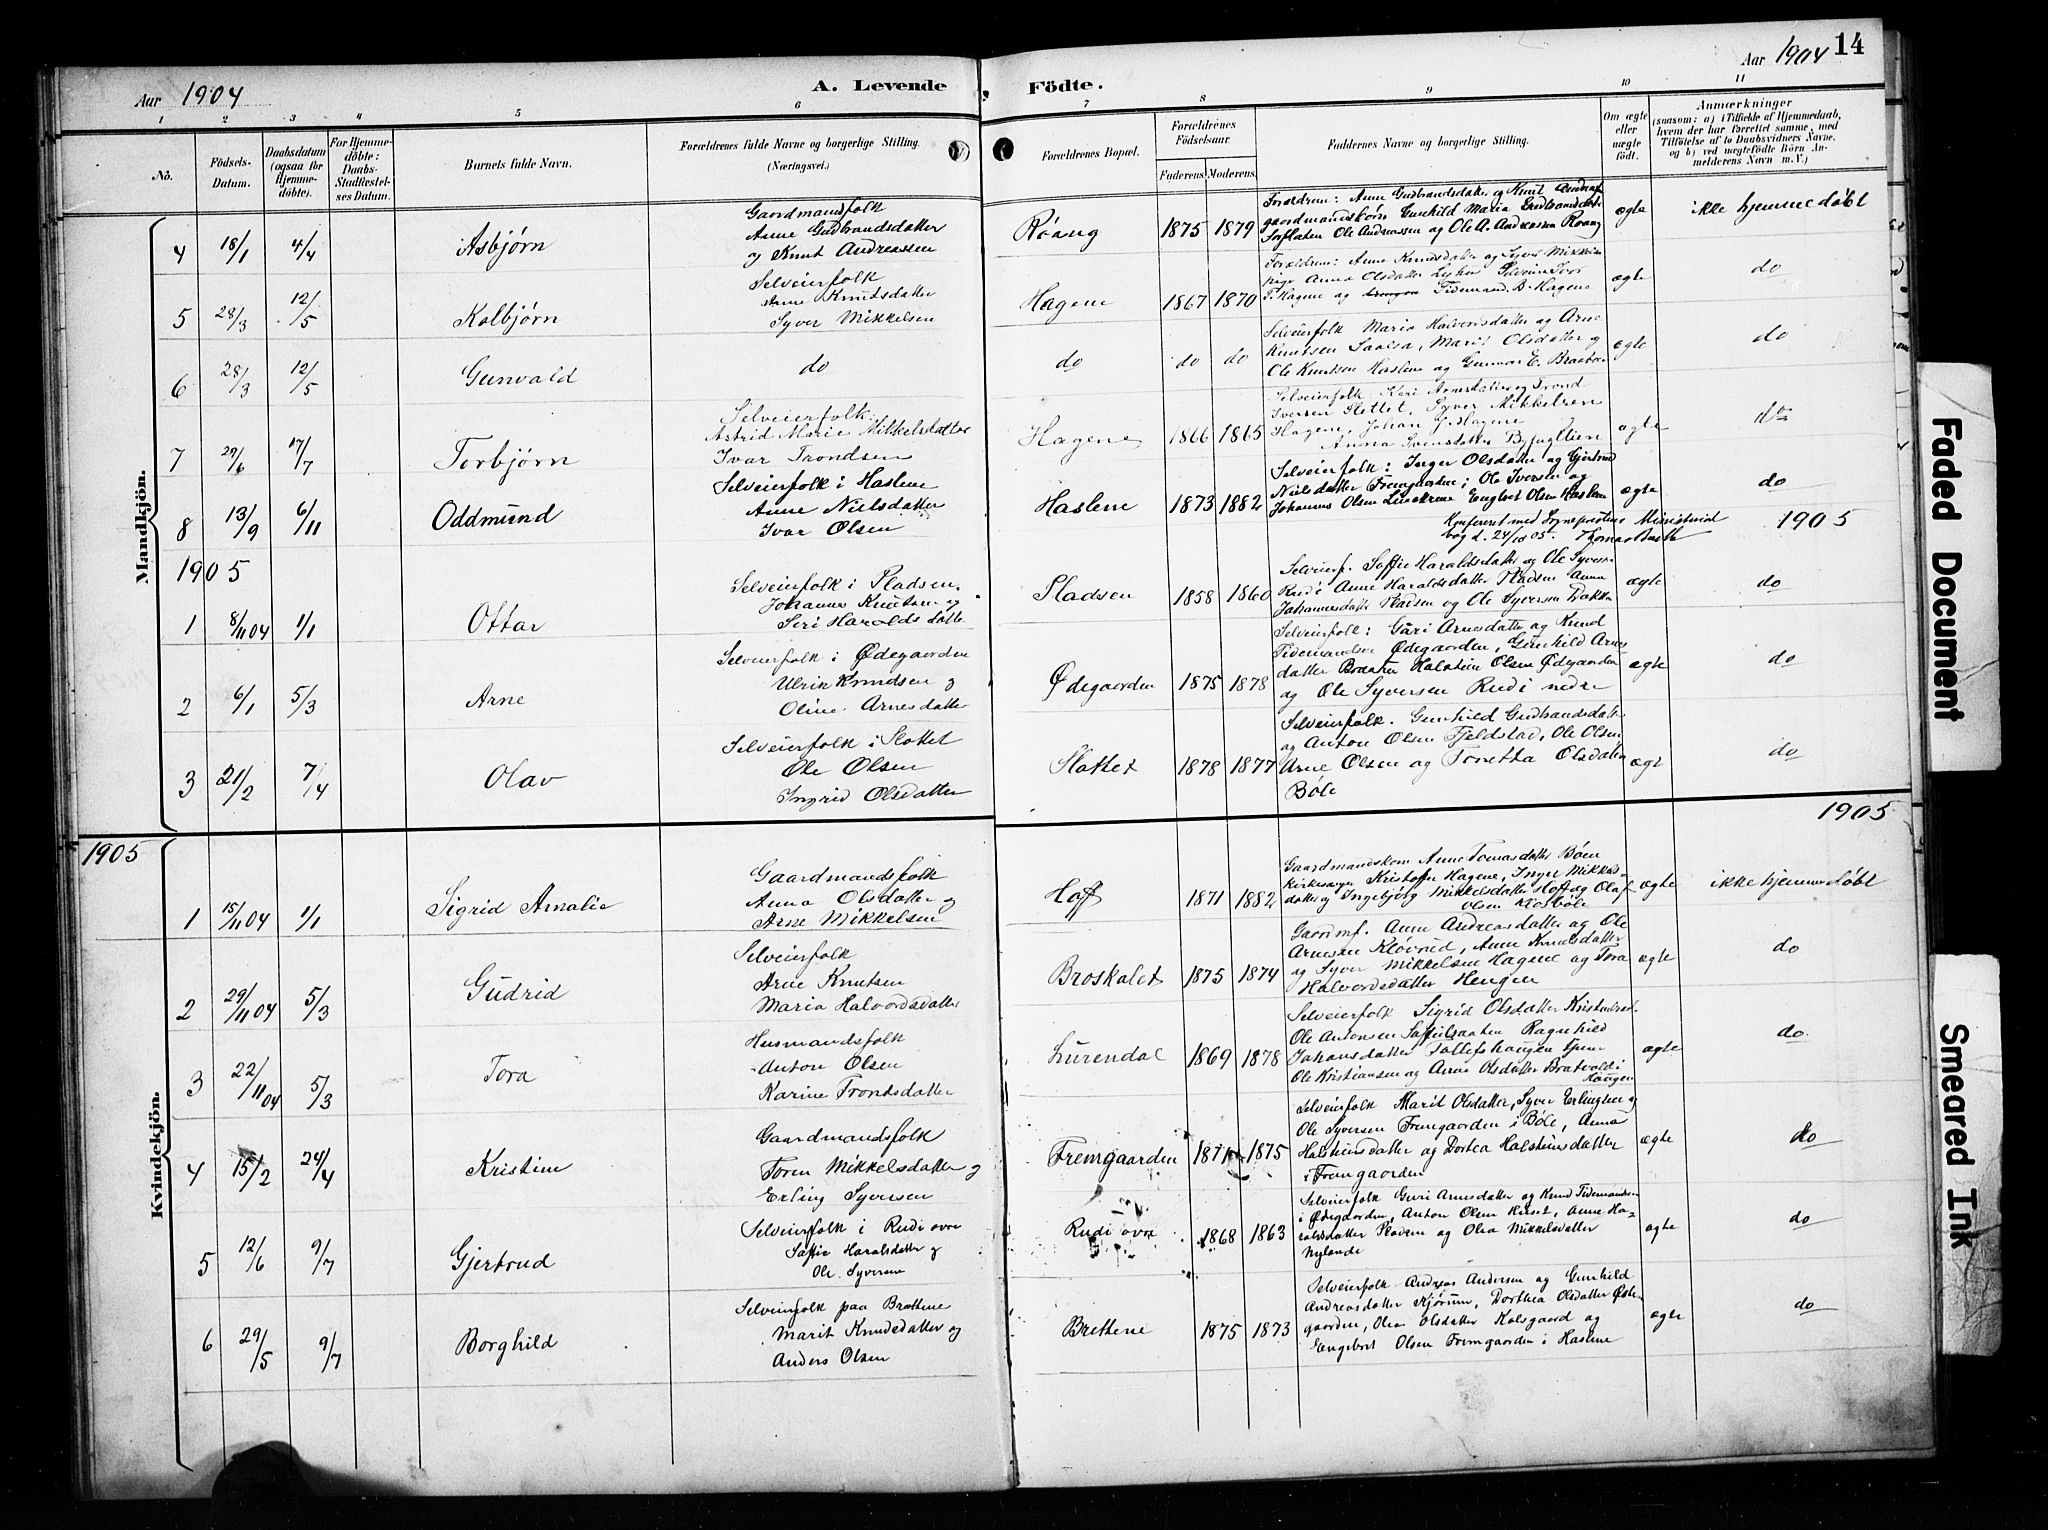 Aar 1904
A. Levende Födte.
Aar 1904
14
1 2 3 4 5 6 7 8 9 10 11
No.
Födsels-
Datum.
Daabsdatum
(ogsaa för
Hjemme-
döbte).
For Hjemme-
döbte:
Daabs-
Stadfæstel-
ses Datum.
Barnets fulde Navn.
Forældrenes fulde Navne og borgerlige Stilling.
(Næringsvei.)
Forældrenes Bopæl.
Forældrenes
Födselsaar.
Faderens. Moderens.
Faddernes Navne og borgerlige Stilling.
Om ægte
eller
uægte
födt.
Anmærkninger
(saasom: a) i Tilfælde af Hjemmedaab,
hvem der har forrettet samme, med
Tilföielse af to Daabsvidners Navne.
og b) ved uægtefödte Börn An-
melderens Navn m. V.)
Mandkjön.
4 18/1 4/4 Asbjørn
Gaardmandsfolk
Anne Gudbrandsdatter
og Knut Andreassen
Røang 1875 1879
Forældrene: Anne Gudbrandsdatter og Knut
gaardmandskone Gunhild Maria
Ole Andreassen og Ole A. Andreassen Røang
ægte ikke hjemmedøbt
5 28/3 12/5 Kolbjørn
Selveierfolk
Anne Knutsdatter
Syver Mikkelsen
Hagene 1867 1870
Forældrene: Anne Knutsdatter og Syver Mikkelsen
pige Anna Olsdatter Selveier Ivar
T. Hagene og Tidemand B. Hagene
ægte do
6 28/3 12/5 Gunvald
do
do do do
Selveierfolk Maria Halvorsdatter og Arne
Knutsen Marit Olsdatter og
Ole Knutsen Haslene og Gunvor E. Braaten
ægte do
7 29/6 17/7 Torbjørn
Selveierfolk
Astrid Marie Mikkelsdatter
Ivar Trondsen
Hagene 1866 1865
Selveierfolk Kari Arnesdatter og Trond
Iversen Slettet, Syver Mikkelsen
Hagene, Johan J. Hagene
Anna Svensdatter Byfuglien
ægte do
8 13/9 6/11 Oddmund
Selveierfolk i Haslene
Anne Nielsdatter
Ivar Olsen
Haslene 1873 1882
Selveierfolk: Inger Olsdatter og Gjertrud
Nielsdatter Fremgaarden; Ole Iversen og
Johannes Olsen Engbret Olsen Haslene
ægte do
Konfereret med Sogneprestens Ministerial
bog d. 24/10 05. Thomas Barth
1905
1905
1 8/11 04 1/1 Ottar
Selveierfolk i Pladsen.
Johannes Knutsen og
Siri Haraldsdatter
Pladsen 1858 1860
Selveierf. Soffie Haraldsdatter og Ole Syversen
Rudi Anne Haraldsdatter Pladsen Anna
Johannesdatter Pladsen og Ole Syversen Bakken
ægte do
2 6/1 5/3 Arne
Selveierfolk i Ødegaarden
Ulrik Knudsen og
Oline Arnesdatter
Ødegaarden 1875 1878
Selveierfolk: Guri Arnesdatter og Knud
Tidemandsen Ødegaarden, Gunhild Arnes
datter Braaten Halstein Olsen Ødegaarden
og Ole Syversen Rudi nedre
ægte do
3 21/2 7/4 Olav
Selveierfolk i Slottet
Ole Olsen
Ingrid Olsdatter
Slottet 1878 1877
Selveierfolk. Gunhild Gudbrandsdatter
og Anton Olsen Fjeldstad, Ole Olsen
Arne Olsen og Tonetta Olsdatter
Bøle
ægte do
1905
1905
Kvindekjön.
1 15/11 04 1/1 Sigrid Amalie
Gaardmandsfolk
Anna Olsdatter og
Arne Mikkelsen
Hoff 1871 1882
Gaardmandskone Anne Tomasdatter Bøen
Kirkesanger Kristoffer Hagene, Inger Mikkels-
datter og Ingebjørg Mikkelsdatter Hoff og Olaf
Olsen Klosbøle
ægte ikke hjemmedøbt
2 29/11 04 5/3 Gudrid
Selveierfolk
Arne Knutsen
Maria Halvordsdatter
Broskalet 1875 1874
Gaardmf. Anne Andreasdatter og Ole
Arnesen Kløvrud, Anne Knutsdatter
og Syver Mikkelsen Hagene og Tora
Halvordsdatter Hengen
ægte do
3 22/11 04 5/3 Tora
Husmandsfolk
Anton Olsen
Karine Trondsdatter
Lurendal 1869 1878
Selveierfolk Sigrid Olsdatter
Ole Antonsen Ragnhild
Johansdatter Tollefshaugen
Ole Kristiansen og Anne Olsdatter Bratvold i
Haugen
ægte do
4 15/2 24/4 Kristine
Gaardmandsfolk
Toren Mikkelsdatter og
Erling Syversen
Fremgaarden 1871 1875
Selveierfolk Marit Olsdatter, Syver Erlingsen og
Ole Syversen Fremgaarden i Bøle, Anna
Halsteinsdatter og Dortea Halsteinsdatter
i Fremgaarden
ægte do
5 12/6 9/7 Gjertrud
Selveierfolk i Rudi øvre
Soffie Haralsdatter og
Ole Syversen
Rudi øvre 1868 1863
Selveierfolk Guri Arnesdatter og Knud Tidemandsen
i Ødegaarden, Anton Olsen Anne Ha-
raldsdatter Pladsen og Olea Mikkelsdatter
Nylande
ægte do
6 29/5 9/7 Borghild
Selveierfolk paa Brættene
Marit Knudsdatter og
Anders Olsen
Brettene 1875 1873
Selveierfolk Andreas Andersen og Gunhild
Andreasdatter Kjørum, Dorthea Olsdatter Øde-
gaarden, Olea Olsdatter Kolsgaard og
Engebret Olsen Fremgaarden i Haslene
ægte do
Faded Document
Smeared Ink